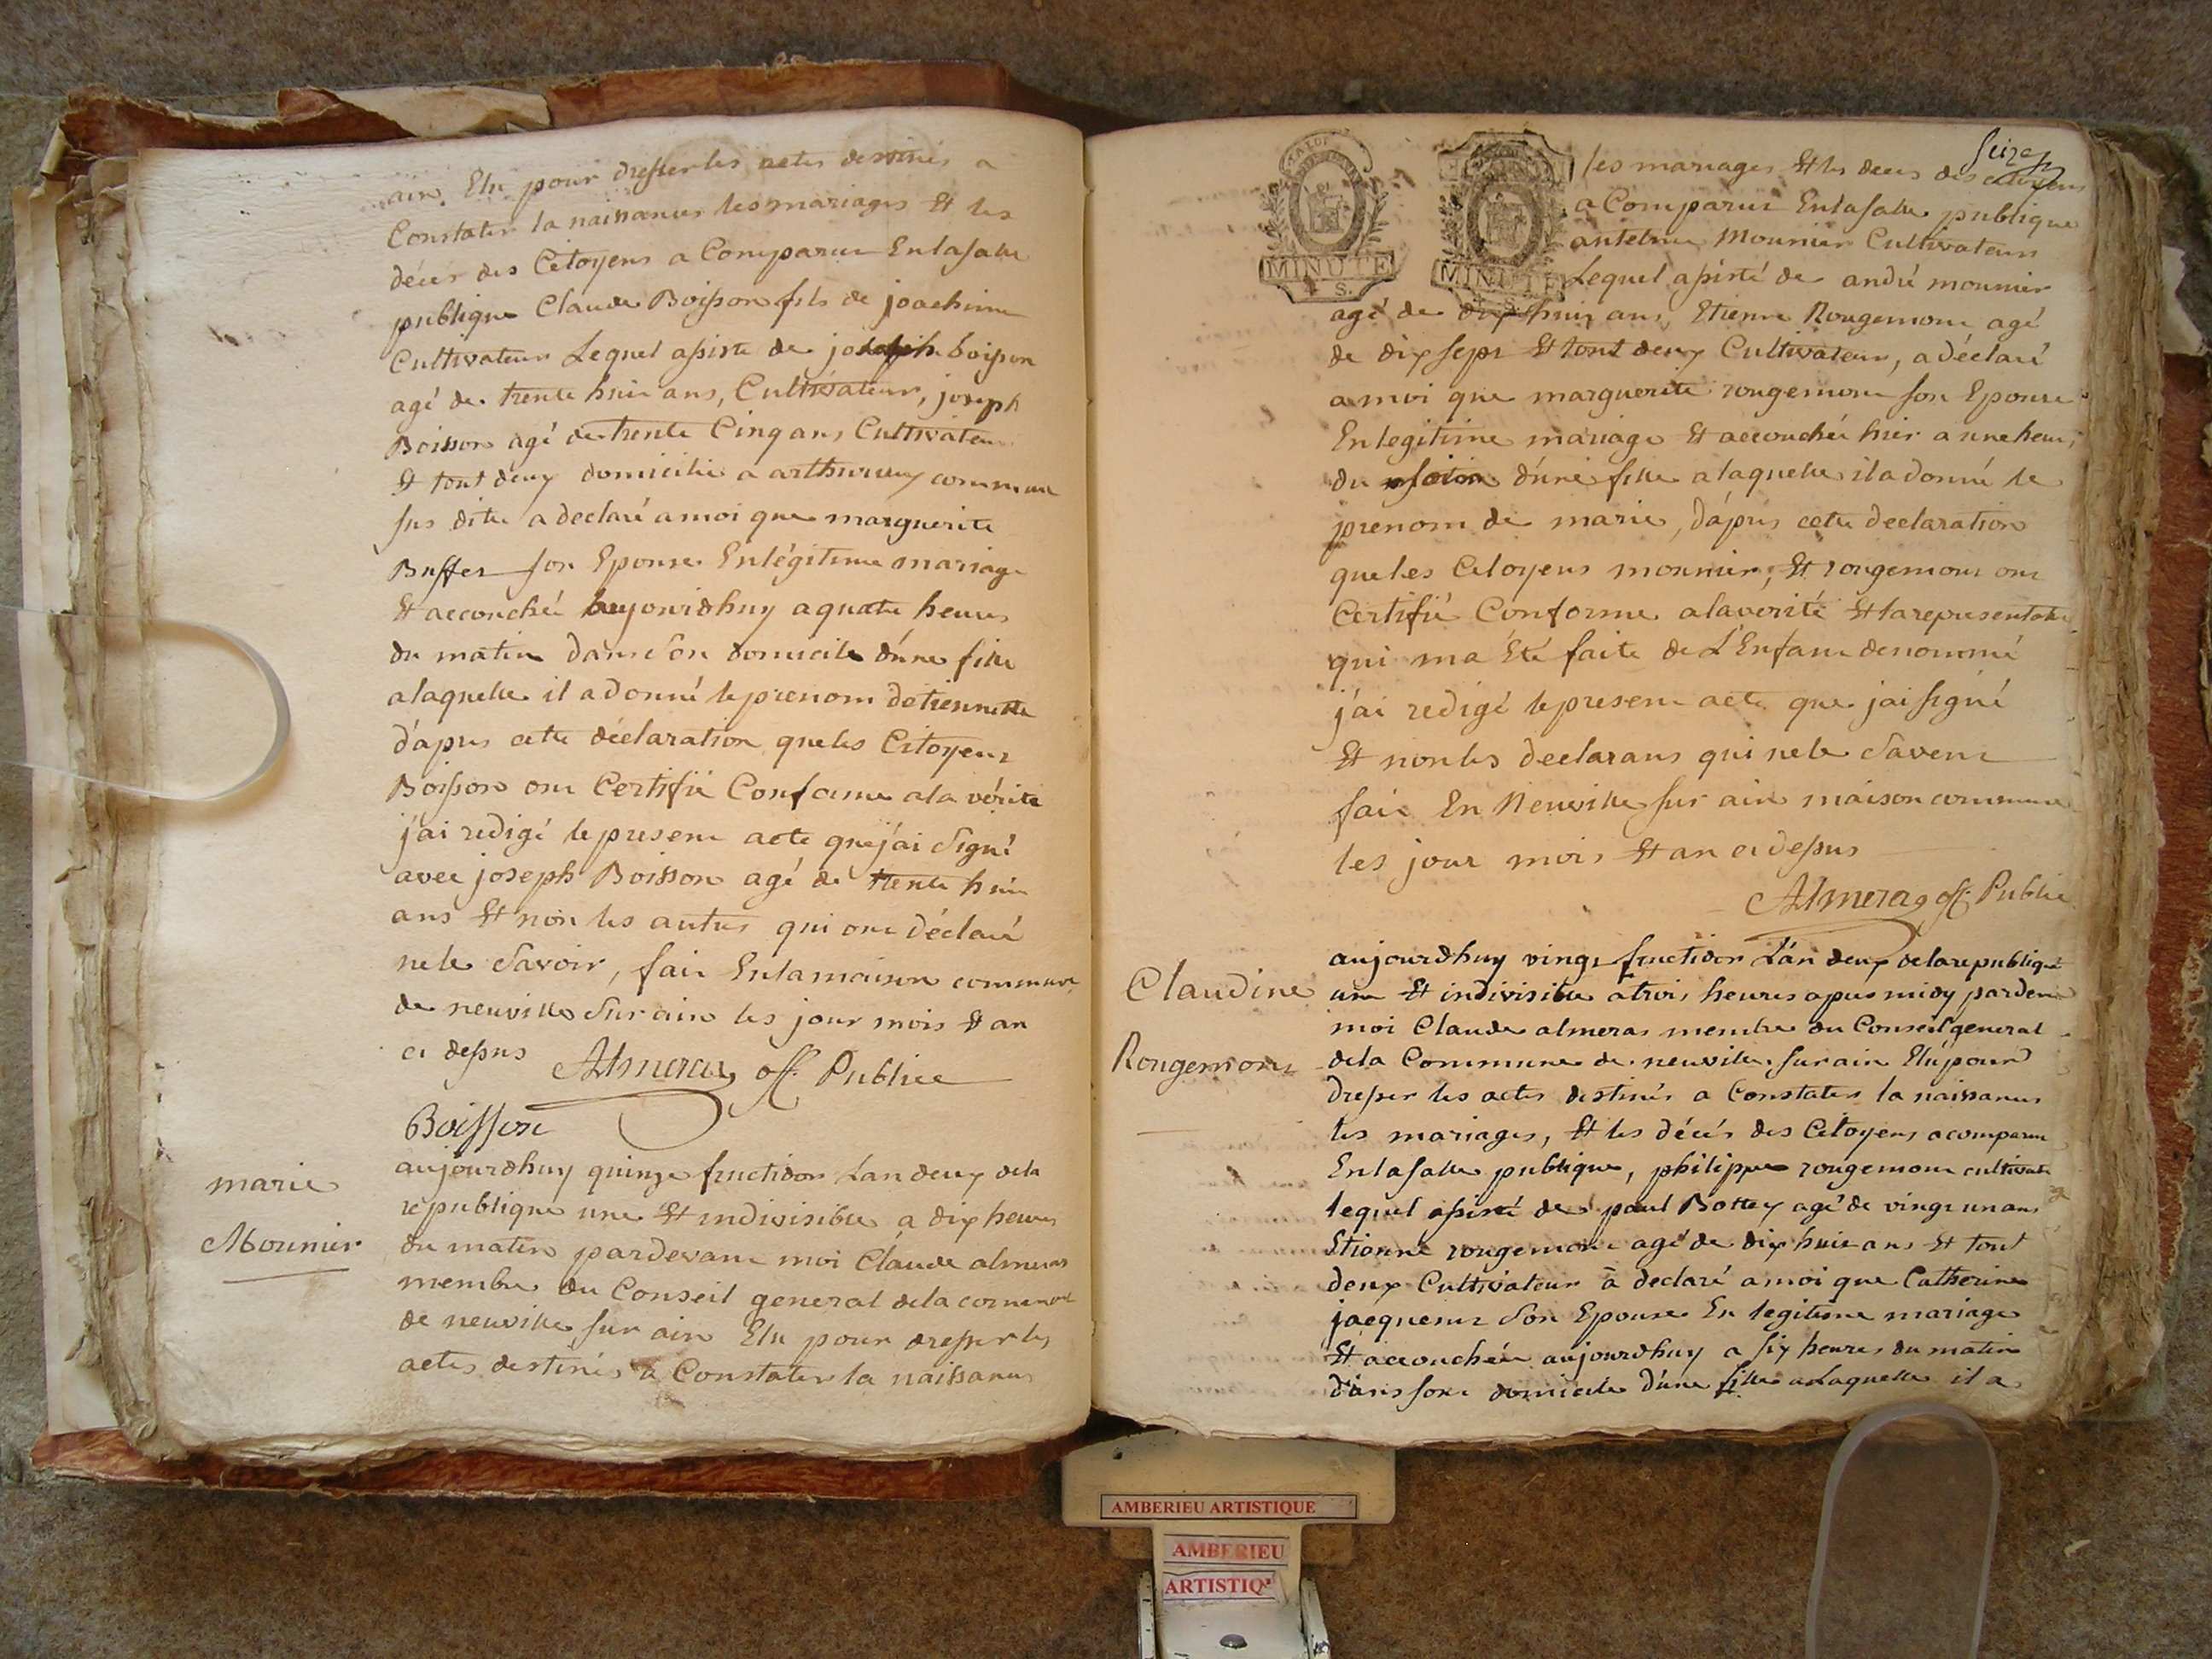 ain Elu pour dresser les actes destinés a
Constater la naissances les mariages Et les
décès des Citoyens a Comparue En la salle
publique Claude Boisson fils de joachim
Cultivateur Lequel assisté de joseph boisson
agé de trente huit ans, Cultivateur, joseph
Boisson agé de trente Cinq ans Cultivateur
Et tout deux domicilié a commune
sus dite a declaré a moi que marguerite
Buffet son Epouse En légitime mariage
Et accouchée aujourdhuy a quatre heures
du matin dans son domicile d'une fille
a laquelle il a donné le prenom detiennette
d'apres cette déclaration que les Citoyens
Boisson ont Certifié Conforme a la vérité
j'ai redigé le present acte que j'ai signé
avec joseph Boisson agé de trente huit
ans Et non les autres qui ont déclaré
ne le savoir, fait En la maison commune
de neuville sur ain les jour mois Et an
ci dessus Almeras off. Public
Boisson
marie
Mounier
aujourdhuy quinze fructidor Lan deux de la
république une Et indivisible a dix heures
du matin pardevant moi Claude almeras
membre du Conseil general de la commune
de neuville sur ain Elu pour dresser les
actes destinés a Constater la naissances
Seize
MINUTE
4 S.
MINUTE
4 S.
les mariages Et les deces des citoyens
a Comparue En la salle publique
antelme Mounier Cultivateur
Lequel assisté de andré mounier
agé de dix huit ans, Etienne Rougemont agé
de dix sept Et tout deux Cultivateur, a déclaré
a moi que marguerite rougemont son Epouse
En legitime mariage Et accouchée hier a une heure
du d'une fille a laquelle il a donné le
prenom de marie, d'apres cette declaration
que les Citoyens mounier, Et rougemont ont
Certifié Conforme a la verité Et la representation
qui ma Eté faite de L'Enfant denommé
j'ai redigé le present acte que jai signé
Et non les declarans qui ne le savent
fait En Neuville sur ain maison commune
les jour mois Et an ci dessus
Almeras off. Public
Claudine
Rougemont
aujourdhuy vingt fructidor L'an deux de la republique
une Et indivisible a trois heures apres midy pardevant
moi Claude almeras membre du Conseil general
de la Commune de neuville sur ain Elu pour
dresser les actes destinés a Constater la naissances
les mariages, Et les décès des Citoyens a comparu
En la salle publique, philippe rougemont cultivateur
lequel assisté de paul Bottex agé de vingt un ans
Etienne rougemont agé de dix huit ans Et tout
deux Cultivateur à declaré a moi que Catherine
jacquemet son Epouse En legitime mariage
Et accouchée aujourdhuy a six heures du matin
dans son domicile d'une fille a Laquelle il a
AMBERIEU ARTISTIQUE
AMBERIEU
ARTISTIQ